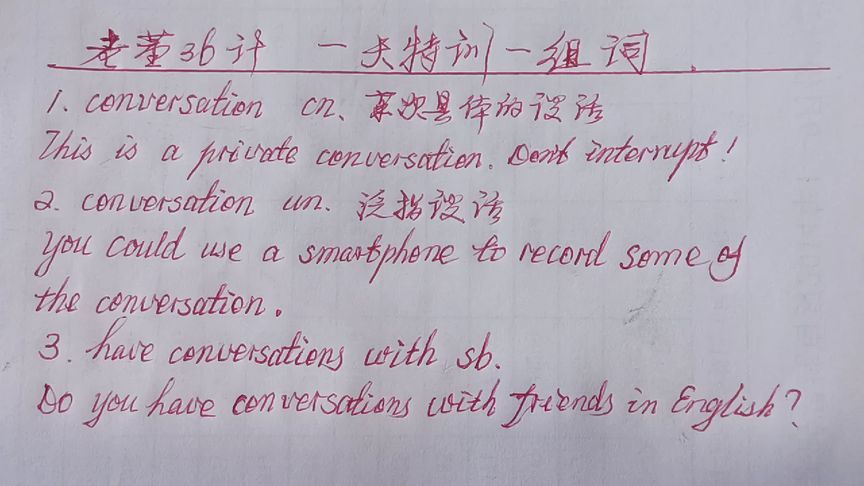 老董36计 一天特训一组词.
1. conversation cn、某次具体的谈话
This is a private conversation. Don't interrupt!
2. conversation un. 泛指谈话
You could use a smartphone to record some of
the conversation.
3. have conversations with sb.
Do you have conversations with friends in English?